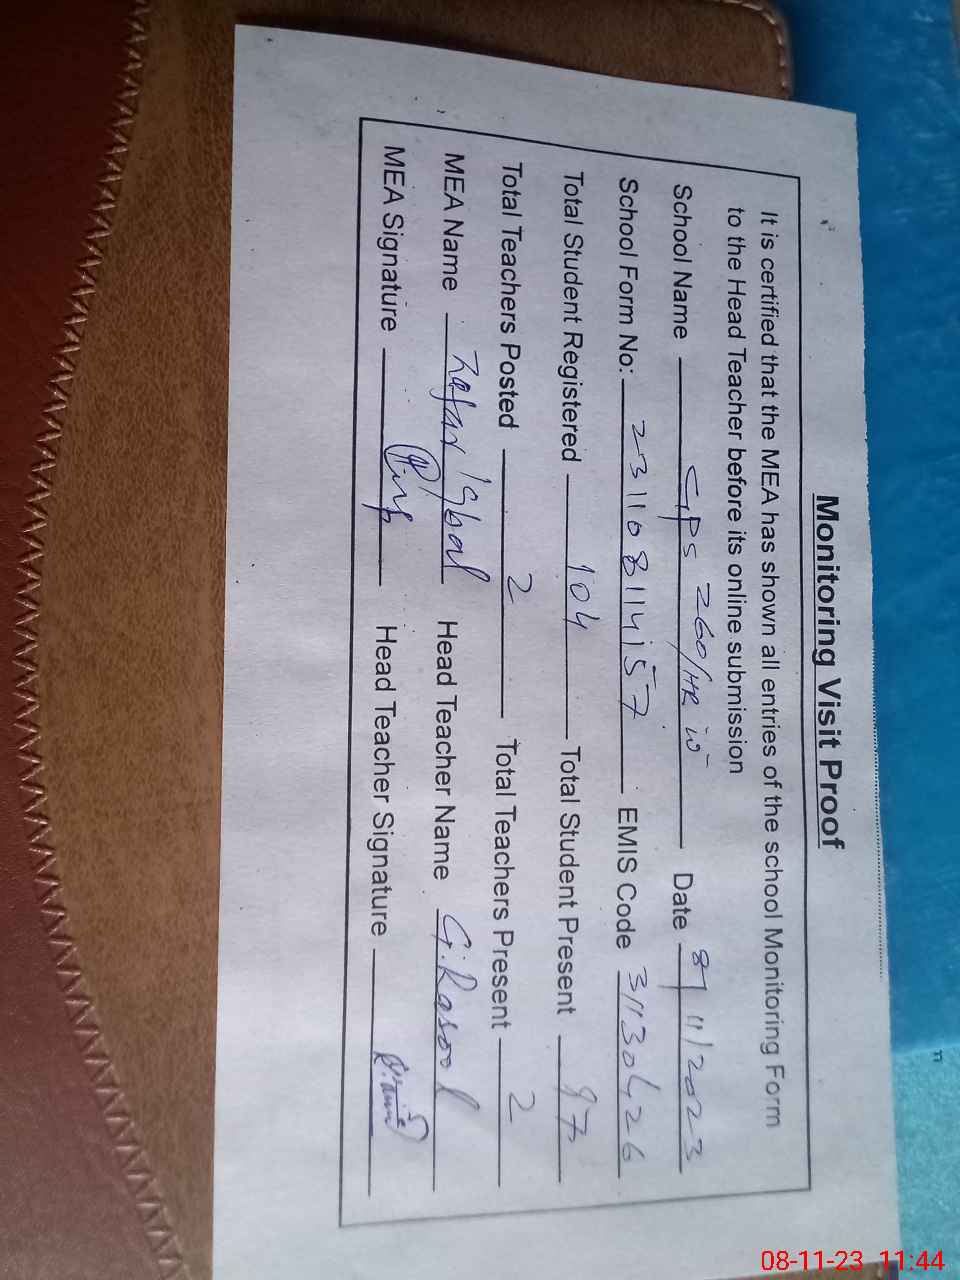 Monitoring Visit Proof
It is certified that the MEA has shown all entries of the school Monitoring Form
to the Head Teacher before its online submission
School Name GPS 260/HR Date 8/11/2023
School Form No: 231108114157 EMIS Code 31130426
Total Student Registered 104 Total Student Present 97
Total Teachers Posted 2 Total Teachers Present 2
MEA Name Zafar Iqbal Head Teacher Name G.Rasool
MEA Signature Head Teacher Signature
08-11-23 11:44